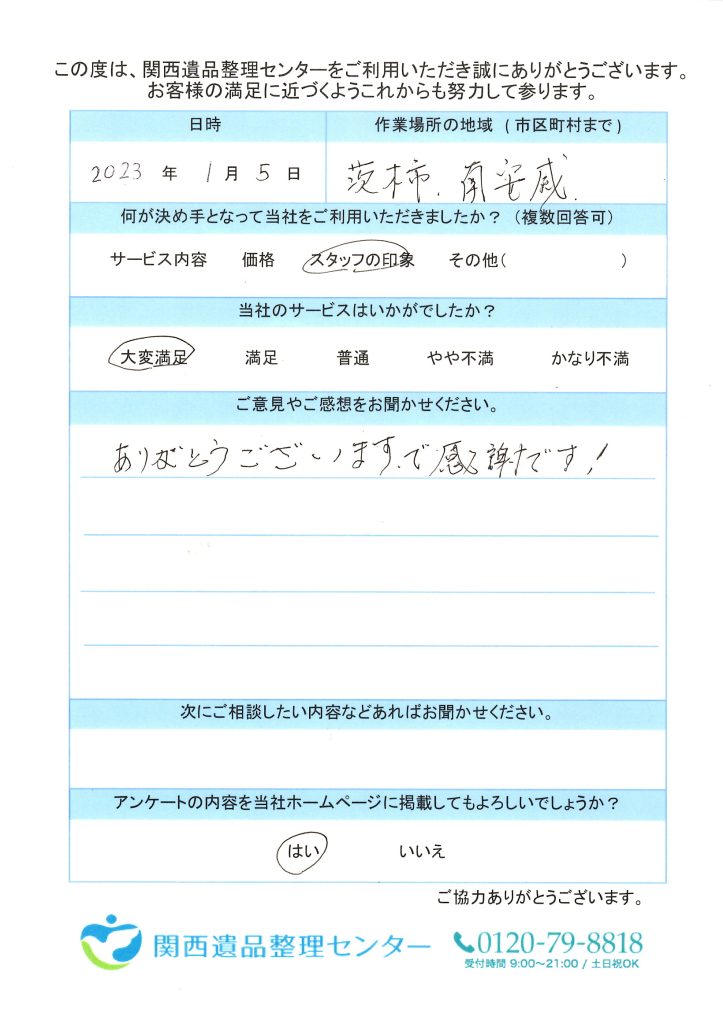 この度は、関西遺品整理センターをご利用いただき誠にありがとうございます。
お客様の満足に近づくようこれからも努力して参ります。
日時
作業場所の地域 (市区町村まで)
2023 年 1 月 5 日
茨木市. 南安威.
何が決め手となって当社をご利用いただきましたか？（複数回答可）
サービス内容 価格 スタッフの印象 その他( )
当社のサービスはいかがでしたか？
大変満足 満足 普通 やや不満 かなり不満
ご意見やご感想をお聞かせください。
ありがとうございます、で感謝です!
次にご相談したい内容などあればお聞かせください。
アンケートの内容を当社ホームページに掲載してもよろしいでしょうか？
はい いいえ
ご協力ありがとうございます。
関西遺品整理センター
0120-79-8818
受付時間 9:00〜21:00 / 土日祝OK